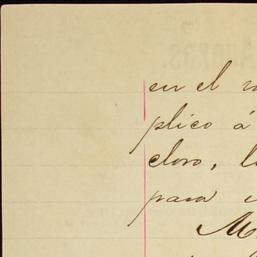 en el
plico á
cloro, l
para
M